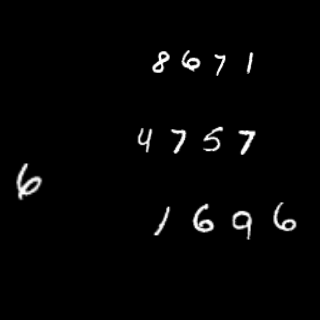 8671
4757
6
1696